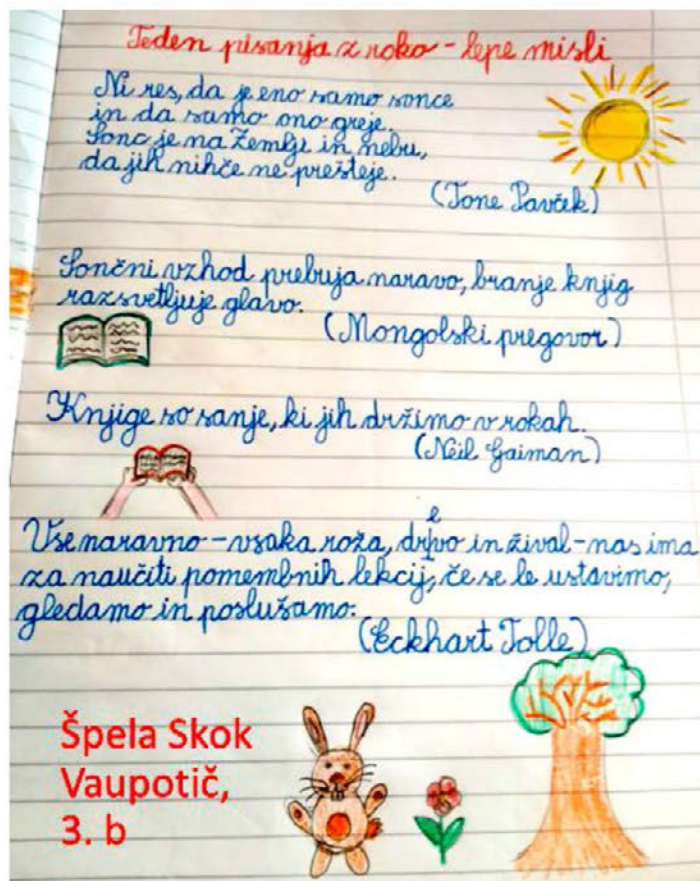 Teden pisanja z roko - lepe misli
Ni res, da je eno samo sonce
in da samo ono greje.
Sonc je na Zemlji in nebu,
da jih nihče ne prešteje.
(Tone Pavček)
Sončni vzhod prebuja naravo, branje knjig
razsvetljuje glavo.
(Mongolski pregovor)
Knjige so sanje, ki jih držimo v rokah.
(Neil Gaiman)
Vse naravno - vsaka roža, drevo in žival - nas ima
za naučiti pomembnih lekcij, če se le ustavimo,
gledamo in poslušamo.
(Eckhart Tolle)
Špela Skok
Vaupotič,
3. b